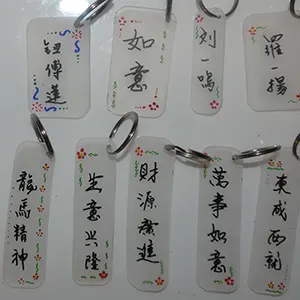 鈕傳蓮
如意
刘一鳴
羅一揚
龍馬精神
生意兴隆
財源廣進
萬事如意
東成西就